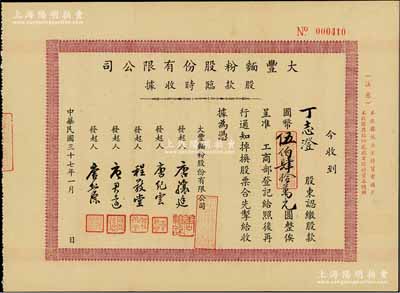 上海陽明拍賣
www.yangmingauction.com
№ 000410
司公限有份股粉麵豐大
據收時臨款股
今收到
丁志澄 股東認繳股款
國幣伍佰肆拾萬元圓整俟
呈准 工商部登記給照後再
行通知掉換股票合先掣給收
據為憑
大豐麵粉股份有限公司
發起人
發起人 唐紀雲
發起人 程敬堂
發起人 唐君遠
發起人
中華民國三十七年一月 日
上海陽明拍賣